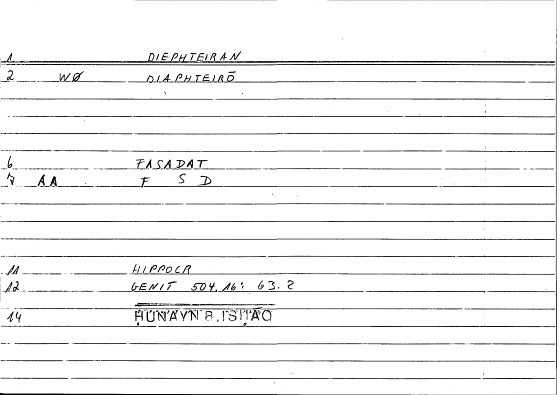 1 DIEPHTEIRAN
2 WØ DIAPHTEIRŌ
6 FASADAT
7 AA F S D
11 HIPPOCR
12 GENIT 504.16: 63.2
14 ḤUNAYN B. ISḤĀQ